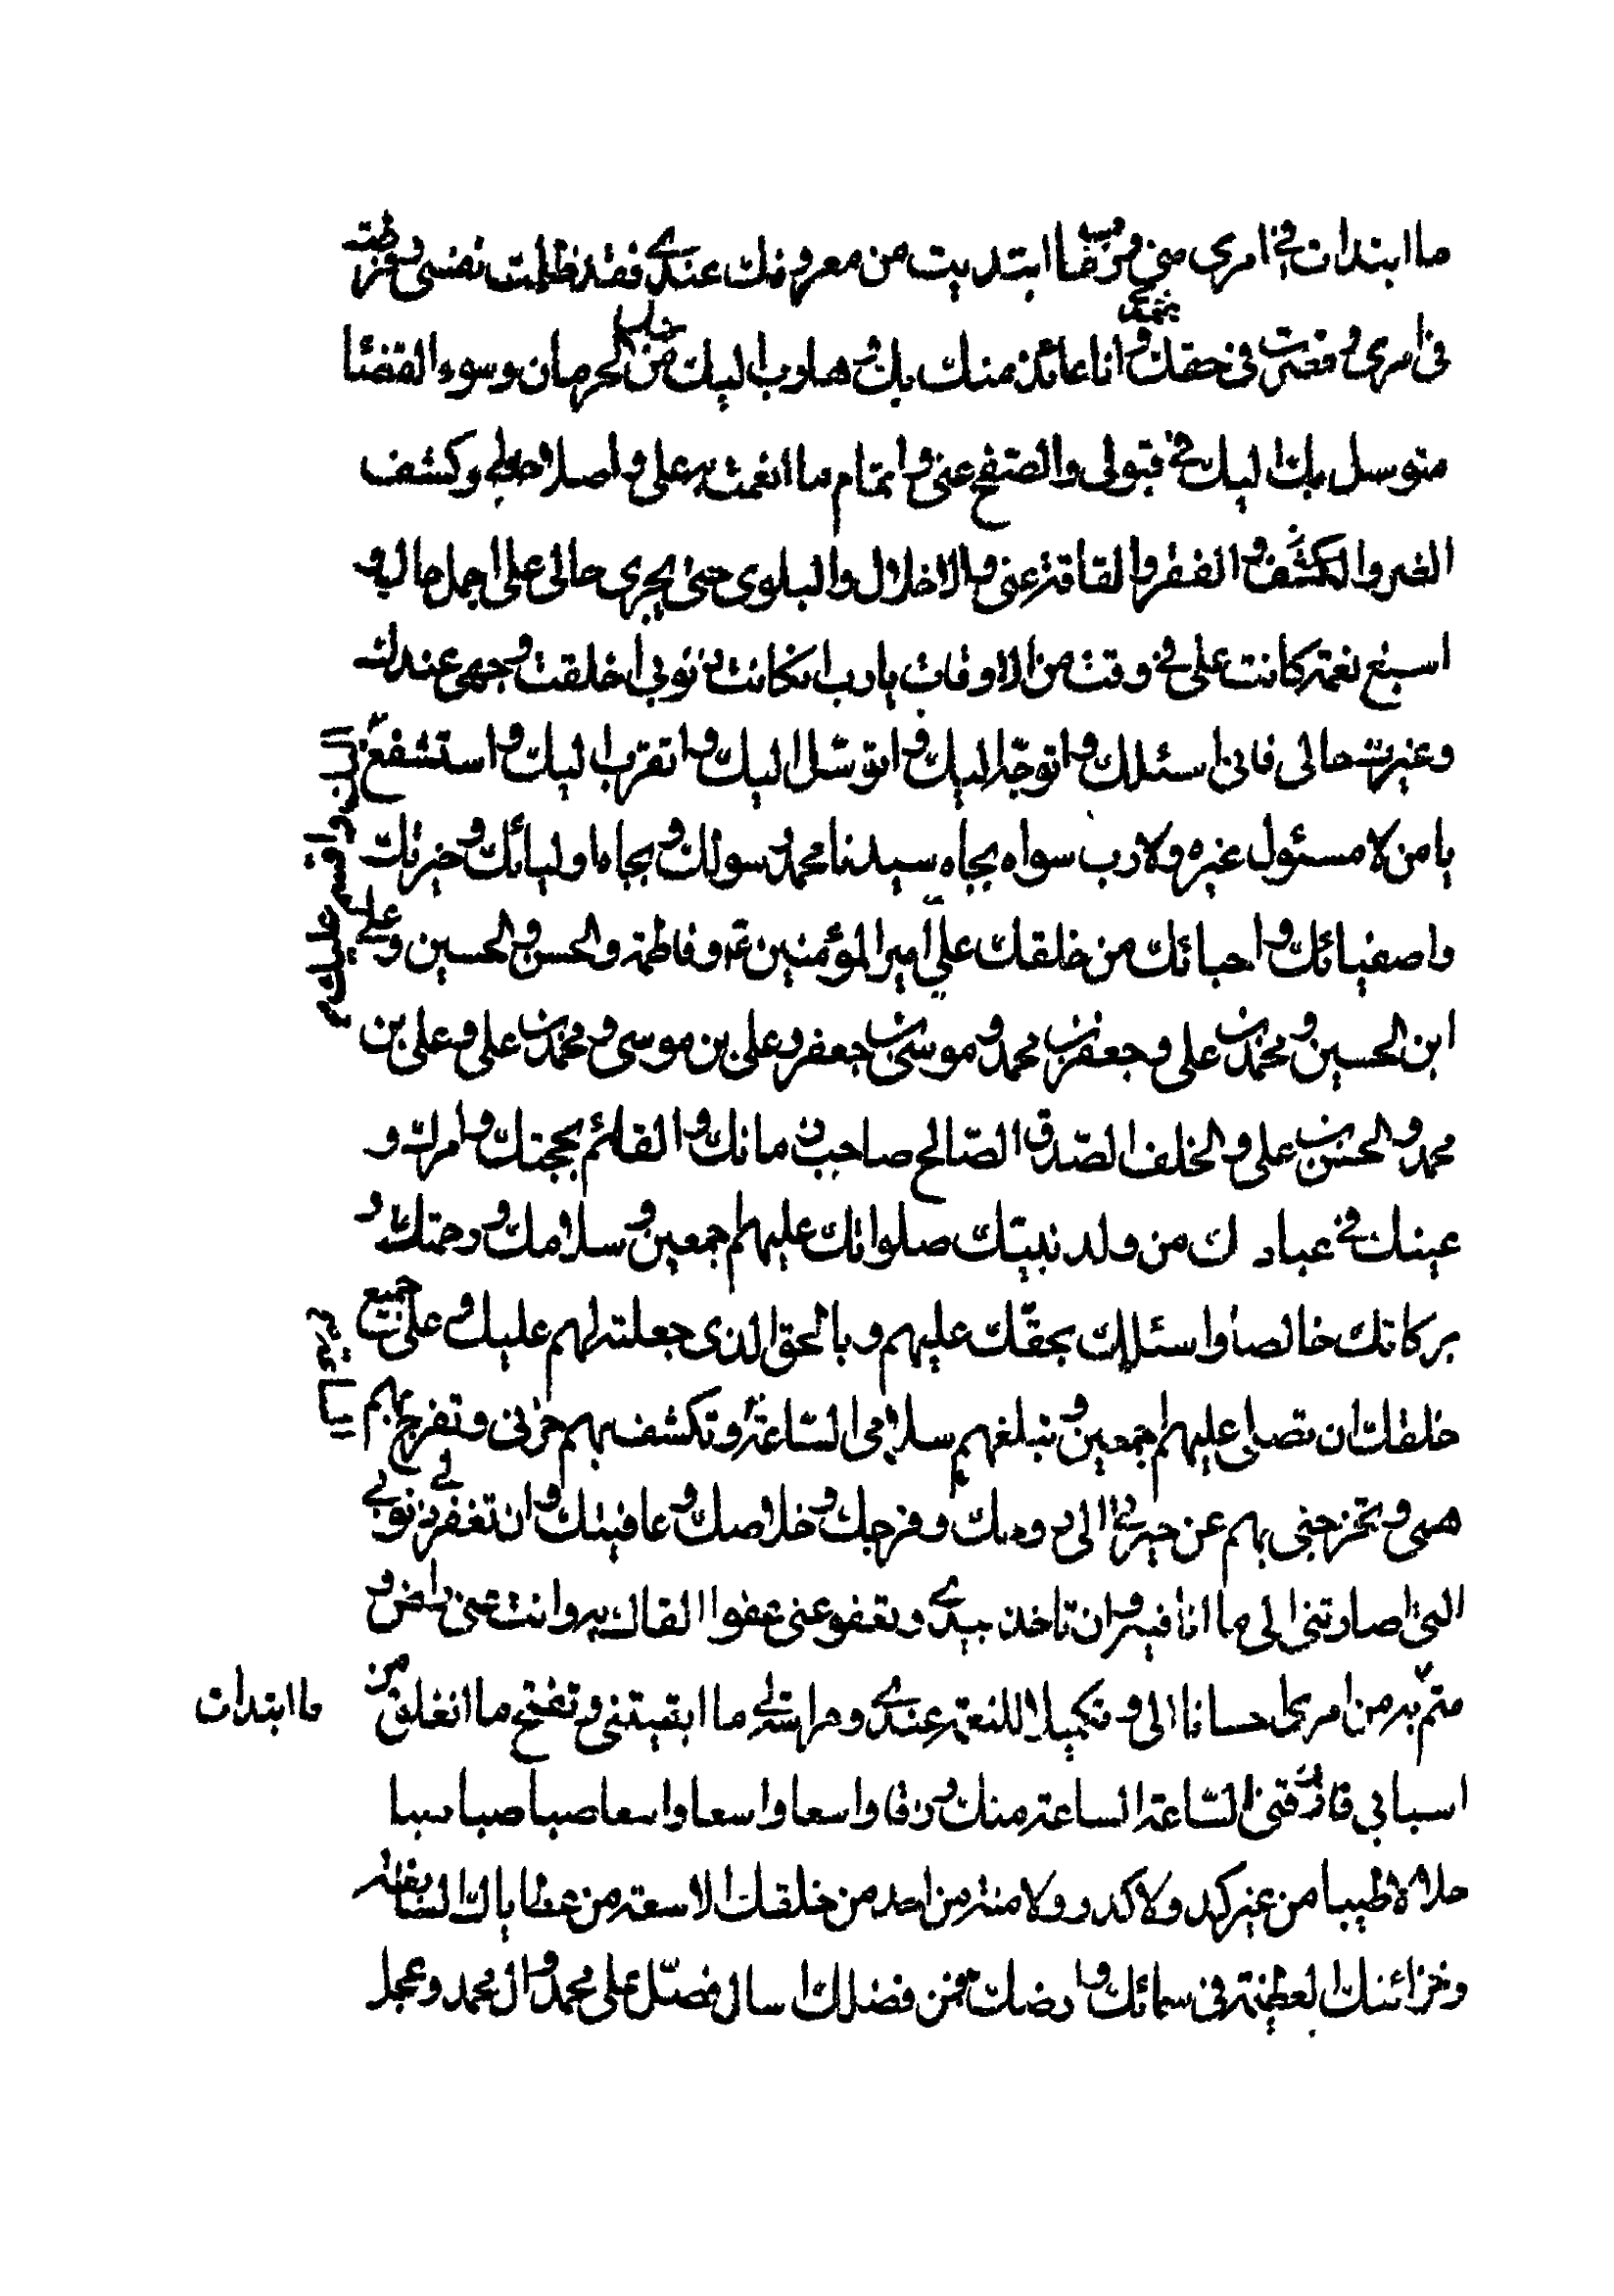 ما ابتدات فی امری منی و ترقب ما ابتدیت من معروفک عندی فقد ظلمت نفسی و فرطت
فی امری و قصرت فی حقک و انا عائذ منک بک و هارب الیک من الحرمان وسوء القضا
متوسل بک الیک فی قبولی والصفح عنی و اتمام ما انعمت به علی و اصلاحه لی وکشف
الضر والتکشف و الفقر والفاقة عنی والاخلال والبلوی حتی یجری حالی علی اجمل حالیه و
اسبغ نعمة کانت علی فی وقت من الاوقات یا رب ان کانت ذنوبی اخلقت وجهی عندک
وغیرت حالی فانی اسئلک و اتوجه الیک و اتوسّل الیک و اتقرب الیک و استشفع
الیک واقسم علیک
یا من لا مسئول غیره ولا رب سواه بجاه سیدنا محمد رسولک و بجاه اولیائک و خیرتک
واصفیائک و احبائک من خلقک علی امیر المؤمنین و فاطمة والحسن والحسین وعلی
ابن الحسین و محمد بن علی و جعفر بن محمد و موسی بن جعفر و علی بن موسی و محمد بن علی و علی بن
محمد و الحسن بن علی والخلف الصّدق الصّالح صاحب زمانک و القائم بحجتک و امرک و
عینک فی عبادک من ولد نبیّک صلواتک علیهم اجمعین و سلامک و رحمتک و
برکاتک خالصا و اسئلک بحقّک علیهم و بالحق الذی جعلته لهم علیک و علی جمیع
خلقک ان تصلی علیهم اجمعین و تبلغهم سلامی السّاعة و تکشف بهم حزنی و تفرج بهم
همی و تخرجنی بهم عن حیرتی الی روحک و فرجک و خلاصک و عافیتک و ان تغفر لی ذنوبی
التی اصارتنی الی ما انا فیه و ان تاخذ بیدی وتعفو عنی عفوا القاک به وانت عنی راض و
متمّ به من امری احسانا الی و تکمیلا للنعمة عندی و حراسة لی ما ابقیتنی و تفتح ما انغلق من
ما ابتدات
اسبابی و ترزقنی السّاعة الساعة منک رزقا واسعا واسعا واسعا صبا صبا صبا
حلالا طیبا من غیر کد ولا کدر ولا منة من احد من خلقک الا سعة من عطایاک السابغة
وخزائنک العظیمة فی سمائک و ارضک فمن فضلک اسال فصلّ علی محمد و ال محمد وعجل